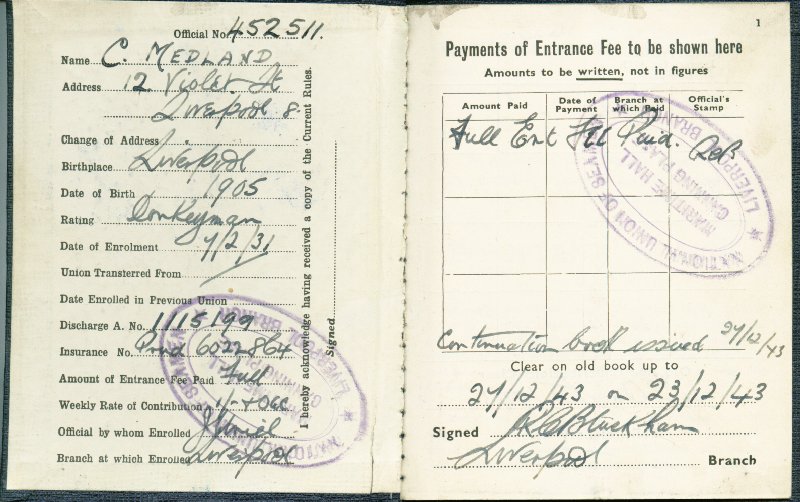 Official No. 452511.
Name C. MEDLAND
Address 12. Violet St
Liverpool 8.
Change of Address
Birthplace Liverpool
Date of Birth 1905
Rating Donkeyman
Date of Enrolment 7/2/31
Union Transferred From
Date Enrolled in Previous Union
Discharge A. No. 1115199
Insurance No. 6022864
Amount of Entrance Fee Paid Full
Weekly Rate of Contribution
Official by whom Enrolled
Branch at which Enrolled Liverpool
I hereby acknowledge having received a copy of the Current Rules.
Signed
1
Payments of Entrance Fee to be shown here
Amounts to be written, not in figures
Amount Paid
Date of Payment
Branch at which Paid
Official's Stamp
Full Ent Fee Paid.
NATIONAL UNION OF SEAMEN
LIVERPOOL BRANCH
MARITIME HALL
CANNING PLACE
Continuation book issued 27/12/43
Clear on old book up to
27/12/43 on 23/12/43
Signed
Liverpool Branch